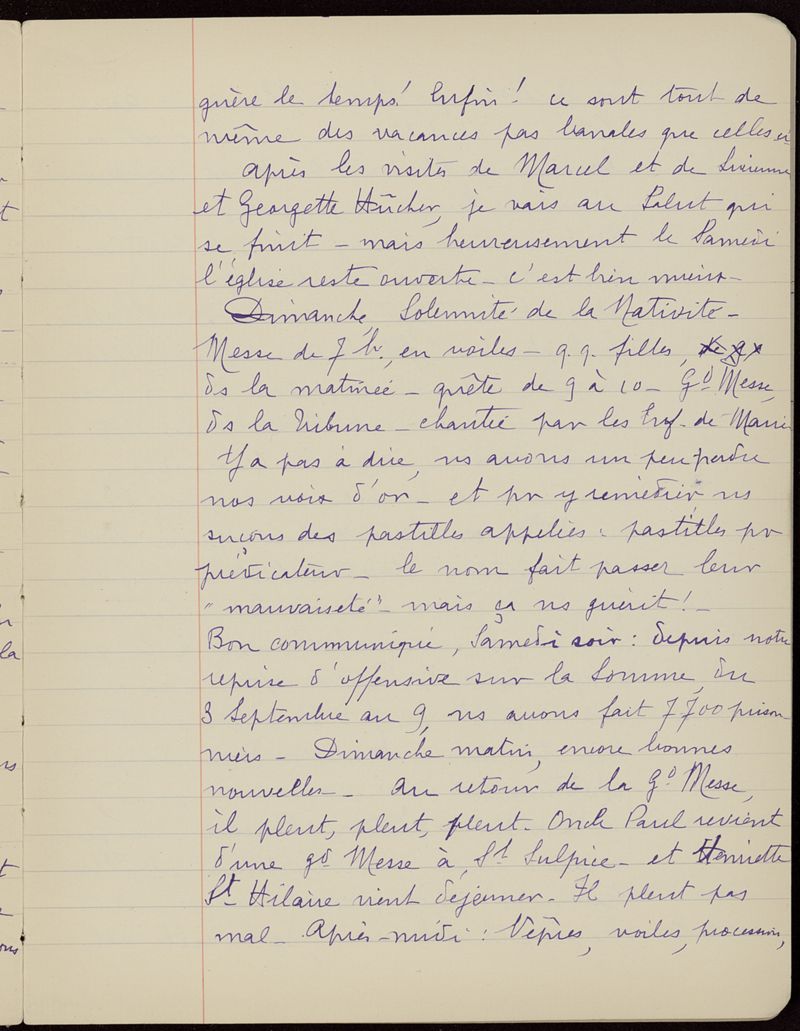 guère le temps! Enfin! ce sont tout de
même des vacances pas banales que celles ci
Après les visites de Marcel et de
et Georgette Hücher, je vais au Salut qui
se finit – mais heureusement le Samedi
l'église reste ouverte – c'est bien mieux –
Dimanche, Solennité de la Nativité –
Messe de 7h., en voiles – q.q. filles,
ds la matinée – quête de 9 à 10 – Gd Messe,
ds la Tribune – chantée par les Enf. de Marie
Y a pas à dire, ns avons un peu perdu
nos voix d'or – et pr y remédier ns
suçons des pastilles appelées : pastilles pr
prédicateur – le nom fait passer leur
"mauvaiseté" – mais ça ns guérit! –
Bon communiqué, Samedi soir : depuis notre
reprise d'offensive sur la Somme, du
3 Septembre au 9, ns avons fait 7700 prison
niers – Dimanche matin, encore bonnes
nouvelles – Au retour de la Gd Messe,
il pleut, pleut, pleut. Oncle Paul revient
d'une gd Messe à St Sulpice – et Henriette
St Hilaire vient déjeuner – Il pleut pas
mal – Après-midi : Vêpres, voiles, procession,
t
la
t